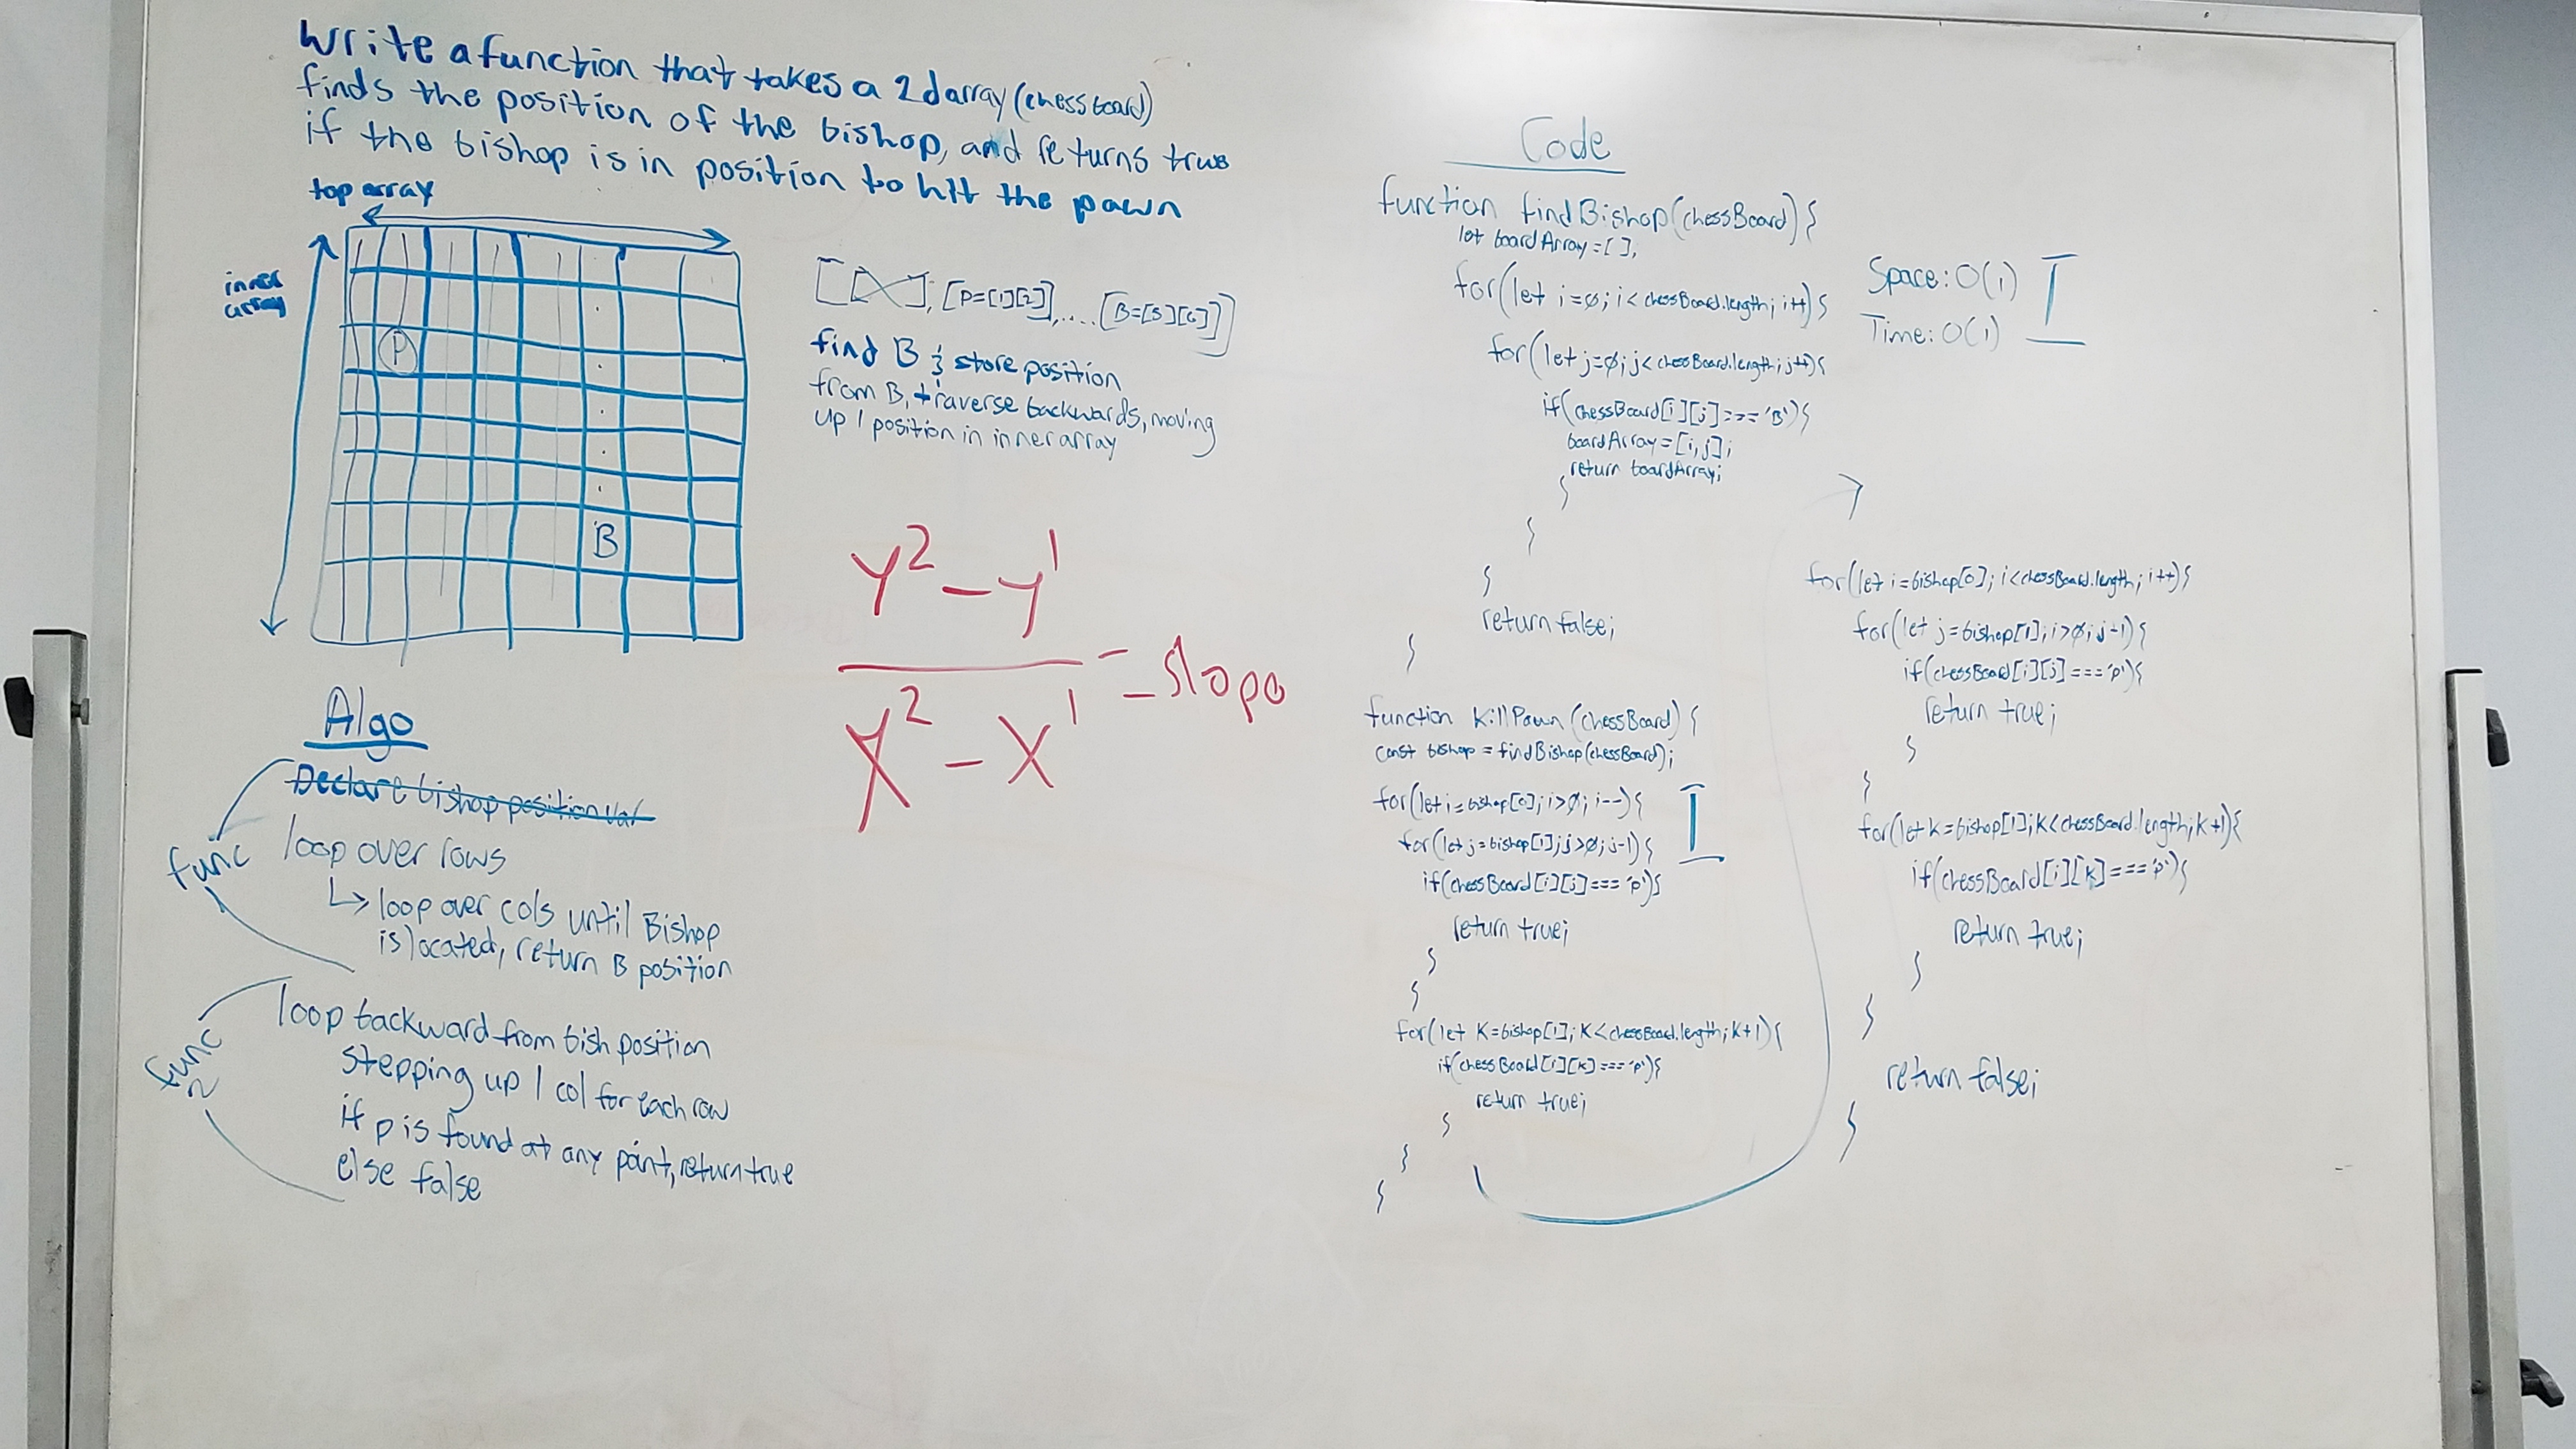 Write a function that takes a 2d array (chess board)
finds the position of the bishop, and returns true
if the bishop is in position to hit the pawn
top array
inner
array
P
B
[[ ], [P=[1][2]], .... [B=[5][6]]]
find B & store position
from B, traverse backwards, moving
up 1 position in inner array
y² - y¹
= slope
x² - x¹
Algo
Declare bishop position var
func
loop over rows
↳ loop over cols until Bishop
is located, return B position
func
2
loop backward from bish position
stepping up 1 col for each row
if p is found at any point, return true
else false
Code
function findBishop(chessBoard) {
let boardArray = [ ];
for(let i=0; i<chessBoard.length; i++) {
for(let j=0; j<chessBoard.length; j++) {
if(chessBoard[i][j] === 'B') {
boardArray = [i, j];
return boardArray;
}
}
}
return false;
}
function killPawn (chessBoard) {
const bishop = findBishop(chessBoard);
for(let i=bishop[0]; i>0; i--) {
for(let j=bishop[1]; j>0; j-1) {
if(chessBoard[i][j] === 'p') {
return true;
}
}
for(let k=bishop[1]; k<chessBoard.length; k+1) {
if(chessBoard[i][k] === 'p') {
return true;
}
}
}
I
Space: O(1)
Time: O(1)
I
for(let i=bishop[0]; i<chessBoard.length; i++) {
for(let j=bishop[1]; i>0; j-1) {
if(chessBoard[i][j] === 'p') {
return true;
}
}
for(let k=bishop[1]; k<chessBoard.length; k+1) {
if(chessBoard[i][k] === 'p') {
return true;
}
}
return false;
}